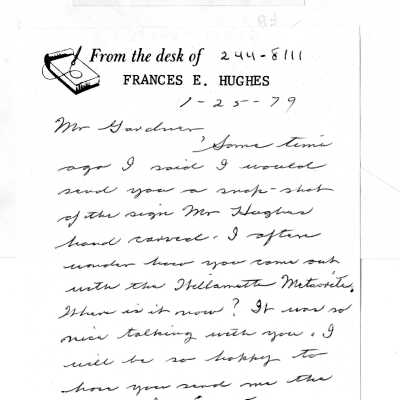 From the desk of 244-8111
FRANCES E. HUGHES
1-25-79
Mr Gardner,
Some time
ago I said I would
send you a snap-shot
of the sign Mr Hughes
hand carved. I often
wonder how you come out
with the Willamette Meteorite.
Where is it now? It was so
nice talking with you. I
will be so happy to
have you send me the